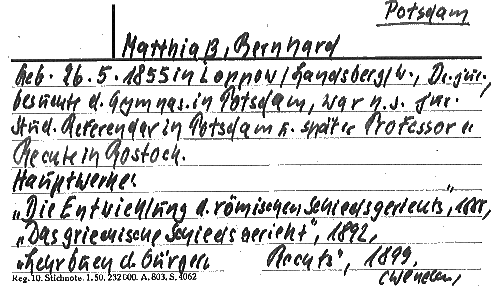 Potsdam
Matthiaß, Bernhard
Geb. 26.5.1855 in Loppow/Landsberg/W., Dr. jur.,
besuchte d. Gymnas. in Potsdam, war n.s. jur.
Stud. Referendar in Potsdam u. später Professor d.
Rechte in Rostock.
Hauptwerke:
„Die Entwicklung d. römischen Schiedsgerichts", 1888,
„Das griechische Schiedsgericht", 1892,
„Lehrbuch d. Bürger. Rechts", 1899,
Reg. 10. Stichnote. 1. 50. 232 000. A. 803, S. 4062